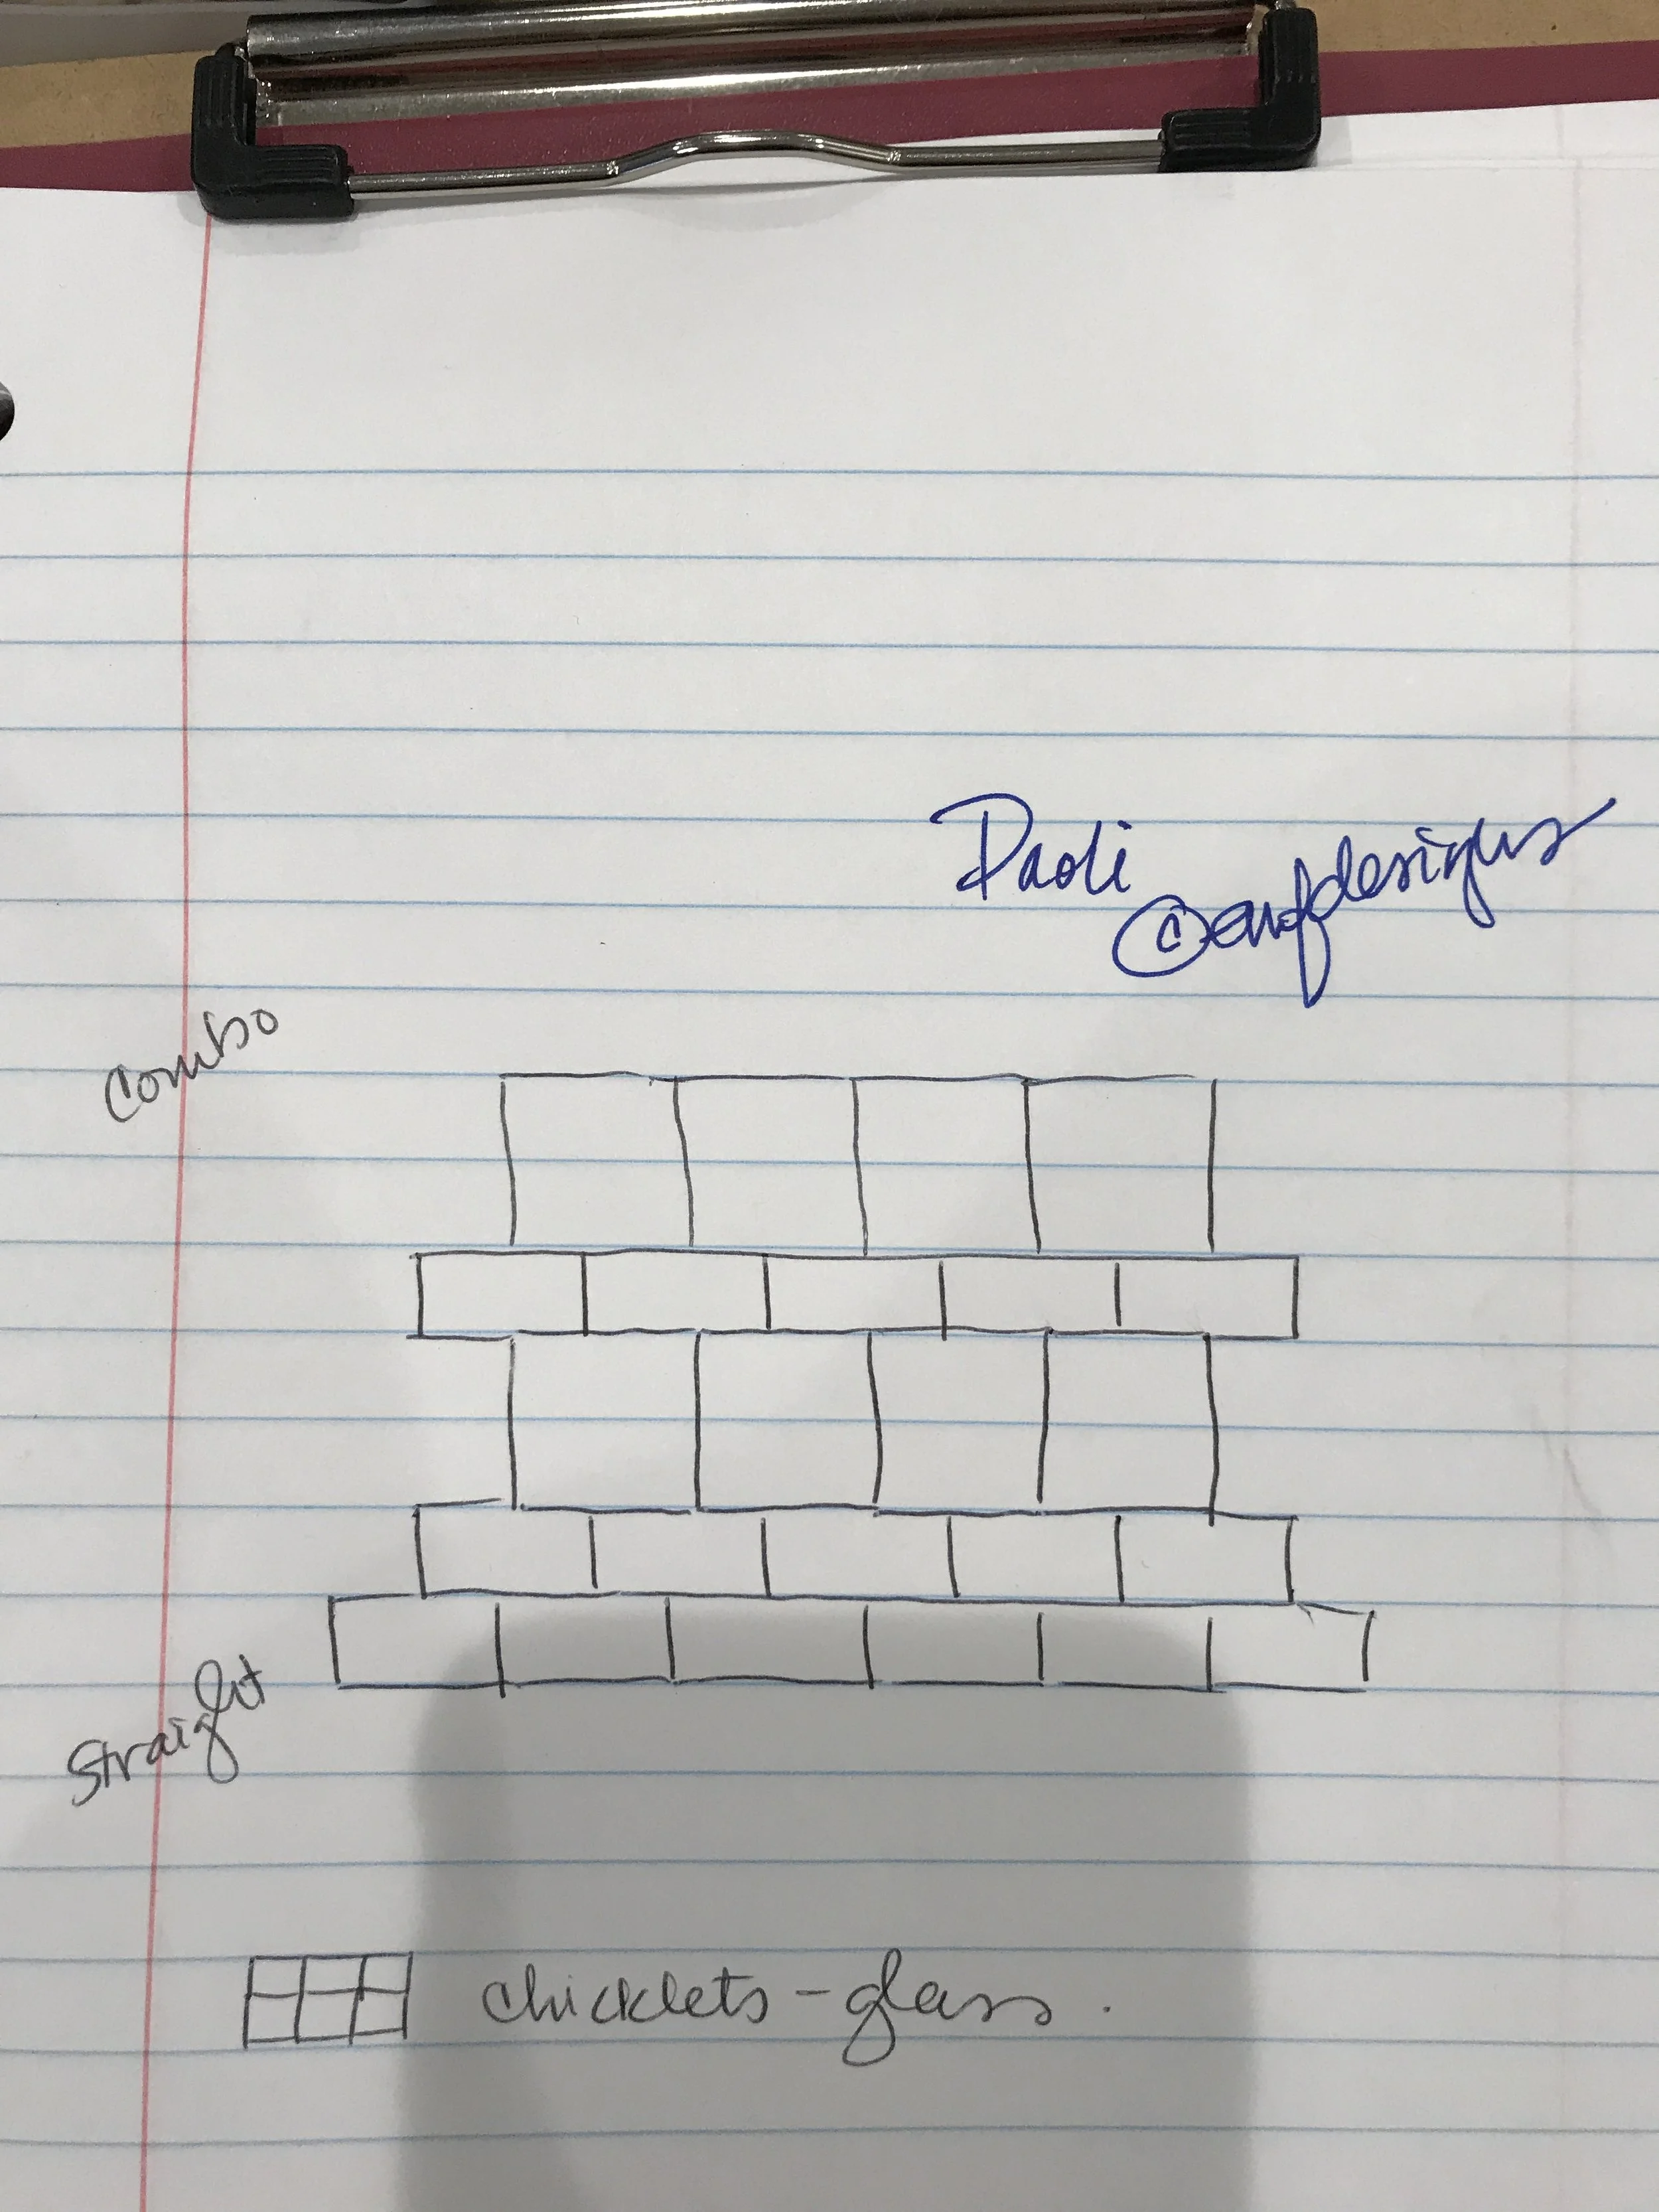 Paoli
Combo
Straight
chicklets - glass.